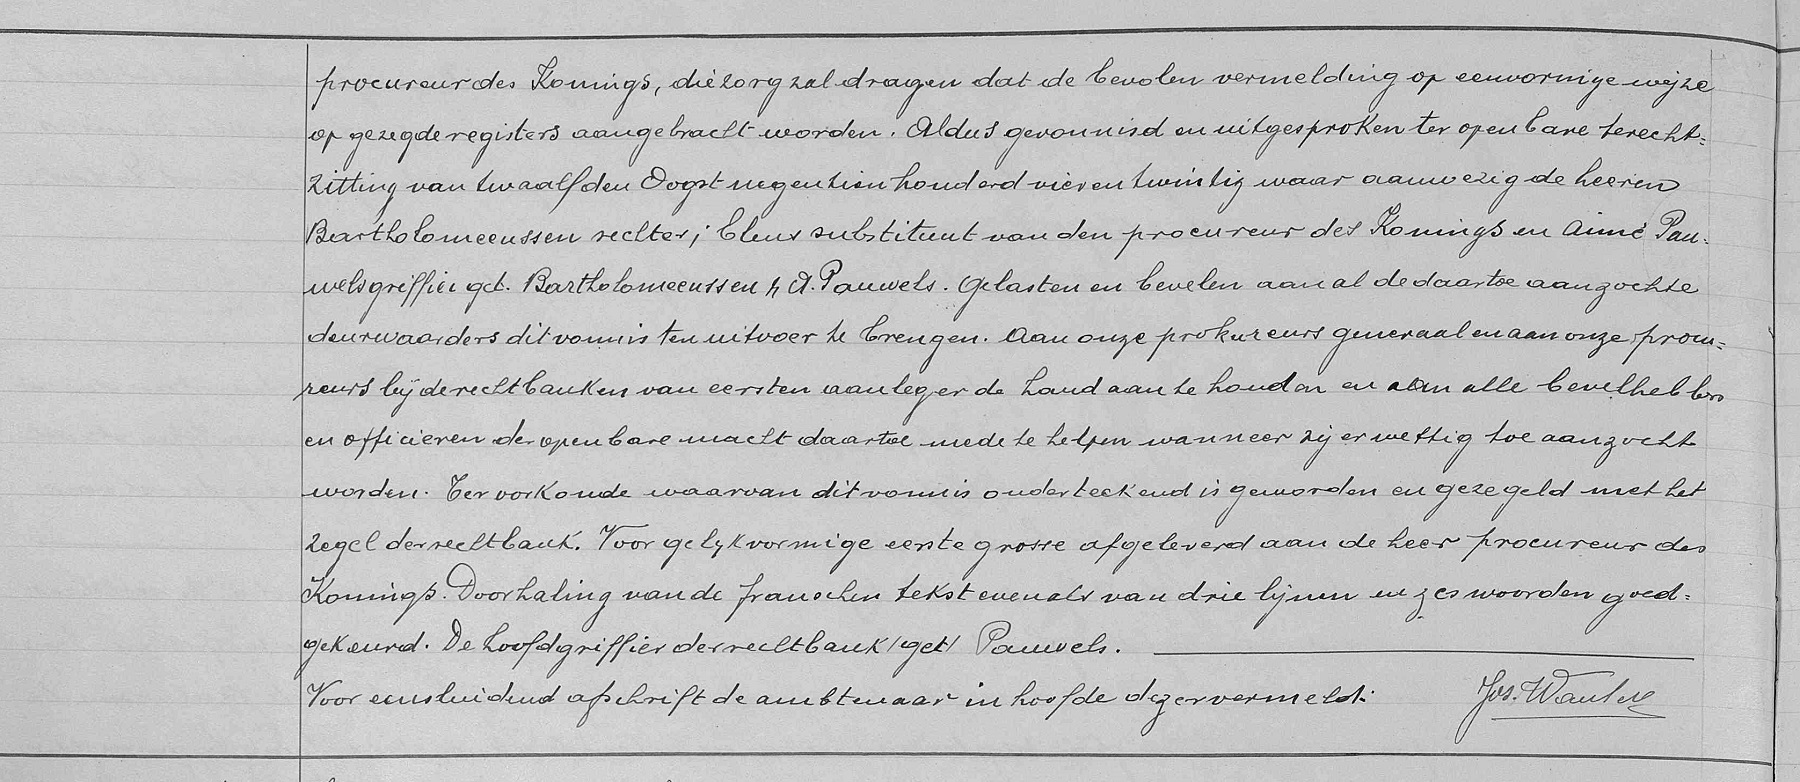 procureur des Konings, die zorg zal dragen dat de bevolen vermelding op eenvormige wijze
op gezegde registers aangebracht worden. Aldus gevonnisd en uitgesproken ter openbare terecht=
zitting van twaalfden Oogst negentien honderd vier en twintig waar aanwezig de heeren
Bartholomeeussen rechter; Clens substituut van den procureur des Konings en Aimé Pau=
wels griffier get. Bartholomeeussen & A. Pauwels. Gelasten en bevelen aan al de daartoe aanzochte
deurwaarders dit vonnis ten uitvoer te brengen. Aan onze prokureurs generaal en aan onze procu=
reurs bij de rechtbanken van eersten aanleg er de hand aan te houden en aan alle bevelhebbers
en officieren der openbare macht daartoe mede te helpen wanneer zij er wettig toe aanzocht
worden. Ter oorkonde waarvan dit vonnis onderteekend is geworden en gezegeld met het
zegel der rechtbank. Voor gelijkvormige eerste grosse afgeleverd aan de heer procureur des
Konings. Doorhaling van de franschen tekst evenals van drie lijnen en zes woorden goed=
gekeurd. De hoofdgriffier der rechtbank /get/ Pauwels.
Voor eensluidend afschrift de ambtenaar in hoofde dezer vermeld:
Jos. Wauters